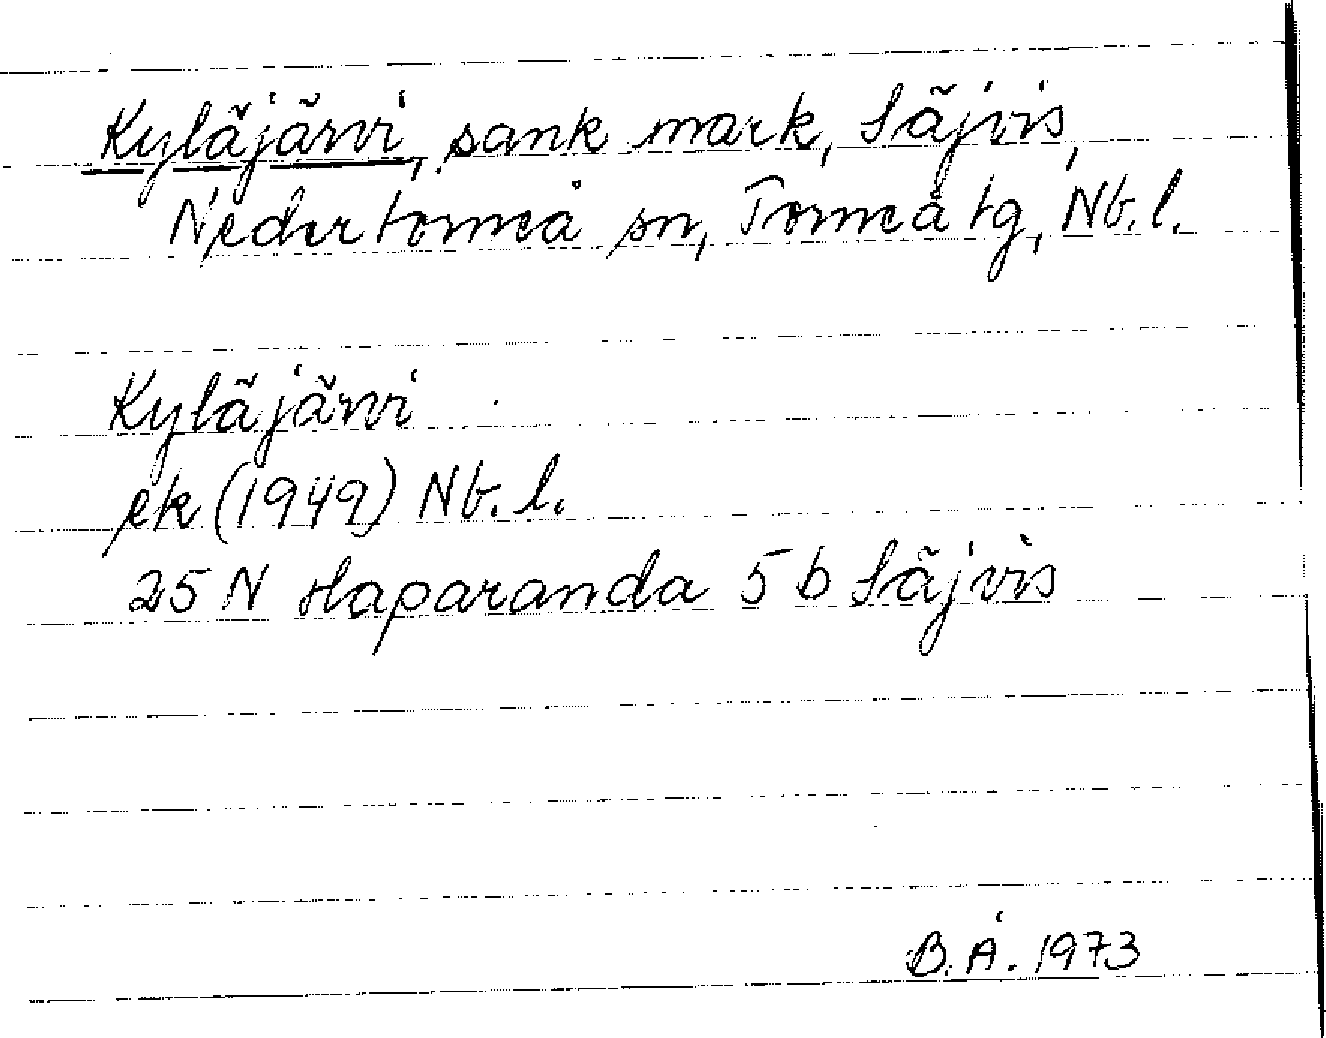 Kyläjärvi, sank mark, Säjvis,
Nedertorneå sn, Torneå tg, Nb.l.
Kyläjärvi
ek (1949) Nb.l.
25 N Haparanda 5 b Säjvis
B.Å. 1973